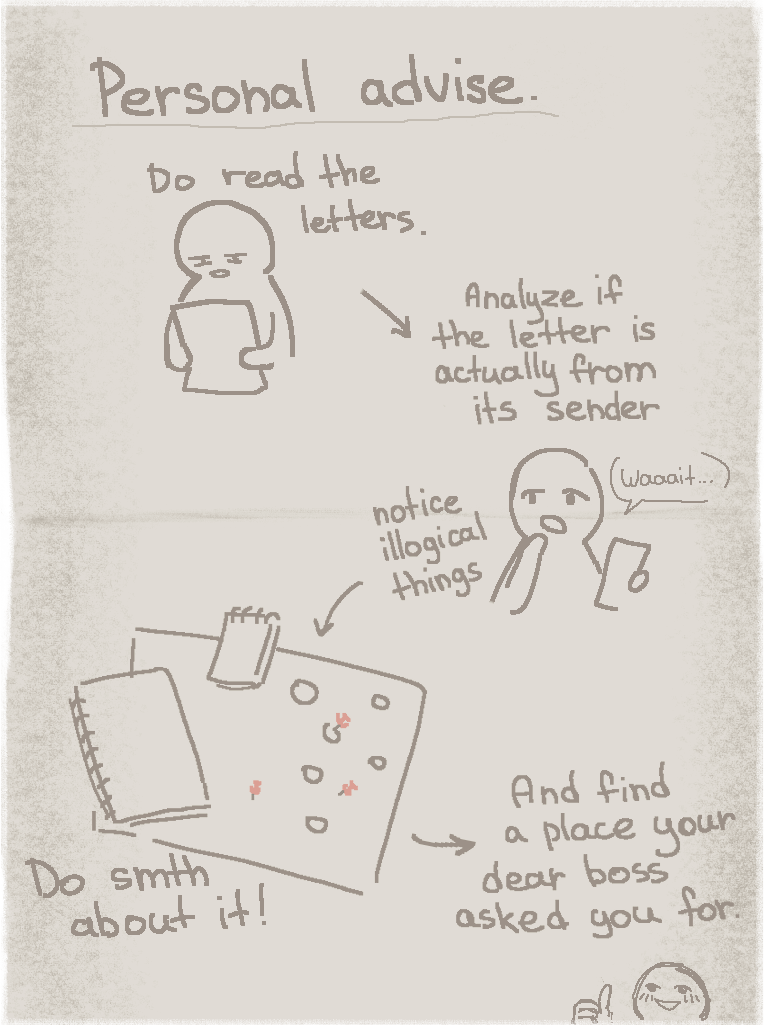 Personal advise.
Do read the
letters.
Analyze if
the letter is
actually from
its sender
(Waaait...)
notice
illogical
things
Do smth
about it!
And find
a place your
dear boss
asked you for.